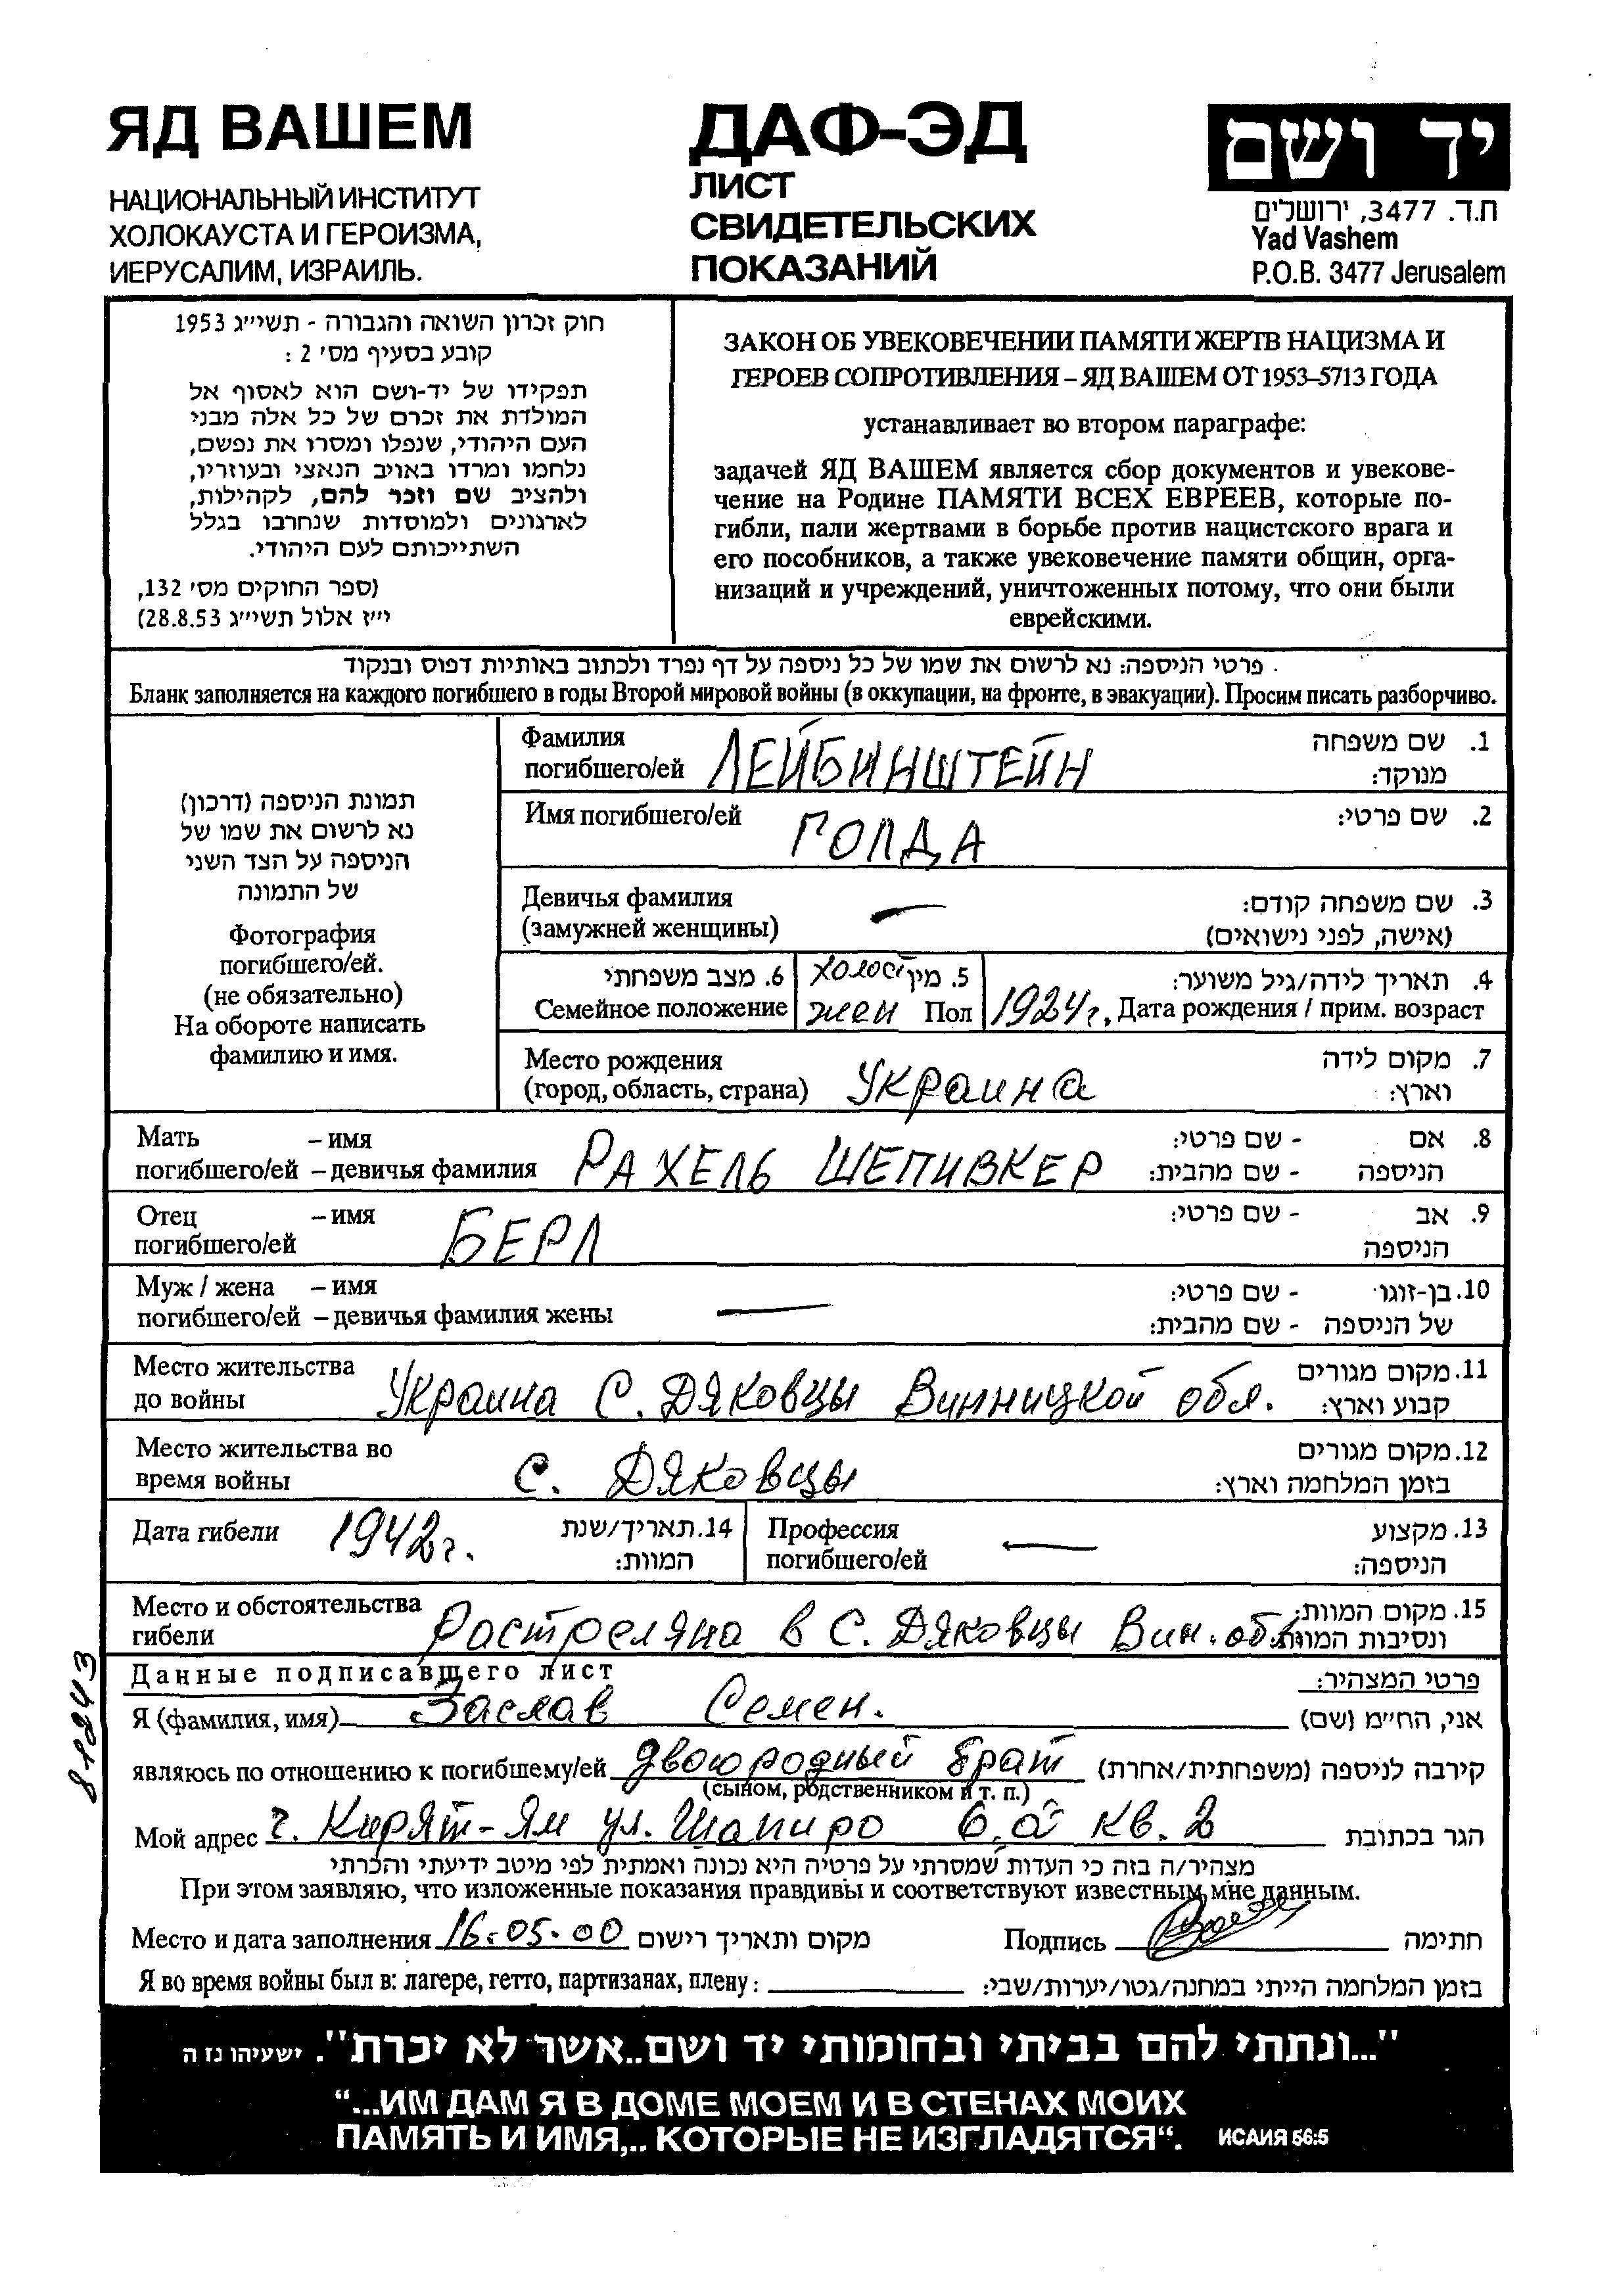 ЯД ВАШЕМ
НАЦИОНАЛЬНЫЙ ИНСТИТУТ
ХОЛОКАУСТА И ГЕРОИЗМА,
ИЕРУСАЛИМ, ИЗРАИЛЬ.
ДАФ-ЭД
ЛИСТ
СВИДЕТЕЛЬСКИХ
ПОКАЗАНИЙ
יד ושם
ת.ד. 3477, ירושלים
Yad Vashem
P.O.B. 3477 Jerusalem
חוק זכרון השואה והגבורה - תשי״ג 1953
קובע בסעיף מס׳ 2 :
תפקידו של יד-ושם הוא לאסוף אל
המולדת את זכרם של כל אלה מבני
העם היהודי, שנפלו ומסרו את נפשם,
נלחמו ומרדו באויב הנאצי ובעוזריו,
ולהציב שם וזכר להם, לקהילות,
לארגונים ולמוסדות שנחרבו בגלל
השתייכותם לעם היהודי.
(ספר החוקים מס׳ 132,
י״ז אלול תשי״ג 28.8.53)
ЗАКОН ОБ УВЕКОВЕЧЕНИИ ПАМЯТИ ЖЕРТВ НАЦИЗМА И
ГЕРОЕВ СОПРОТИВЛЕНИЯ – ЯД ВАШЕМ ОТ 1953–5713 ГОДА
устанавливает во втором параграфе:
задачей ЯД ВАШЕМ является сбор документов и увекове-
чение на Родине ПАМЯТИ ВСЕХ ЕВРЕЕВ, которые по-
гибли, пали жертвами в борьбе против нацистского врага и
его пособников, а также увековечение памяти общин, орга-
низаций и учреждений, уничтоженных потому, что они были
еврейскими.
פרטי הניספה: נא לרשום את שמו של כל ניספה על דף נפרד ולכתוב באותיות דפוס ובנקוד
Бланк заполняется на каждого погибшего в годы Второй мировой войны (в оккупации, на фронте, в эвакуации). Просим писать разборчиво.
תמונת הניספה (דרכון)
נא לרשום את שמו של
הניספה על הצד השני
של התמונה
Фотография
погибшего/ей.
(не обязательно)
На обороте написать
фамилию и имя.
Фамилия
погибшего/ей ЛЕЙБИНШТЕЙН
1. שם משפחה
מנוקד:
Имя погибшего/ей ГОЛДА 2. שם פרטי:
Девичья фамилия
(замужней женщины) —
3. שם משפחה קודם:
(אישה, לפני נישואים)
6. מצב משפחתי
Семейное положение
холост 5. מין
жен Пол
4. תאריך לידה/גיל משוער:
1924г. Дата рождения / прим. возраст
Место рождения
(город, область, страна) Украина
7. מקום לידה
וארץ:
Мать – имя
погибшего/ей – девичья фамилия РАХЕЛЬ ШЕПИВКЕР
8. אם - שם פרטי:
הניספה - שם מהבית:
Отец – имя
погибшего/ей БЕРЛ
9. אב - שם פרטי:
הניספה
Муж / жена – имя
погибшего/ей – девичья фамилия жены —
10. בן-זוגו - שם פרטי:
של הניספה - שם מהבית:
Место жительства
до войны Украина С. Дяковцы Винницкой обл.
11. מקום מגורים
קבוע וארץ:
Место жительства во
время войны С. Дяковцы
12. מקום מגורים
בזמן המלחמה וארץ:
Дата гибели 1942г. 14. תאריך/שנת
המוות:
Профессия
погибшего/ей —
13. מקצוע
הניספה:
Место и обстоятельства
гибели Растреляна в С. Дяковцы Вин. обл.
15. מקום המוות:
ונסיבות המוות:
Данные подписавшего лист פרטי המצהיר:
Я (фамилия, имя) Заслав Семен. אני, הח״מ (שם)
являюсь по отношению к погибшему/ей двоюродный брат קירבה לניספה (משפחתית/אחרת)
(сыном, родственником и т. п.)
Мой адрес г. Кирят-Ям ул. Шапиро 6,а кв. 2 הגר בכתובת
מצהיר/ה בזה כי העדות שמסרתי על פרטיה היא נכונה ואמתית לפי מיטב ידיעתי והכרתי
При этом заявляю, что изложенные показания правдивы и соответствуют известным мне данным.
Место и дата заполнения 16.05.00 מקום ותאריך רישום Подпись חתימה
Я во время войны был в: лагере, гетто, партизанах, плену: בזמן המלחמה הייתי במחנה/גטו/יערות/שבי:
81243
"...ונתתי להם בביתי ובחומותי יד ושם..אשר לא יכרת". ישעיהו נז ה
“...ИМ ДАМ Я В ДОМЕ МОЕМ И В СТЕНАХ МОИХ
ПАМЯТЬ И ИМЯ,.. КОТОРЫЕ НЕ ИЗГЛАДЯТСЯ“. ИСАИЯ 56:5